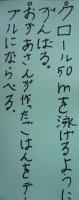 クロール50mを泳げるように
がんばる。
おかあさんが作ったごはんをテー
ブルにならべる。